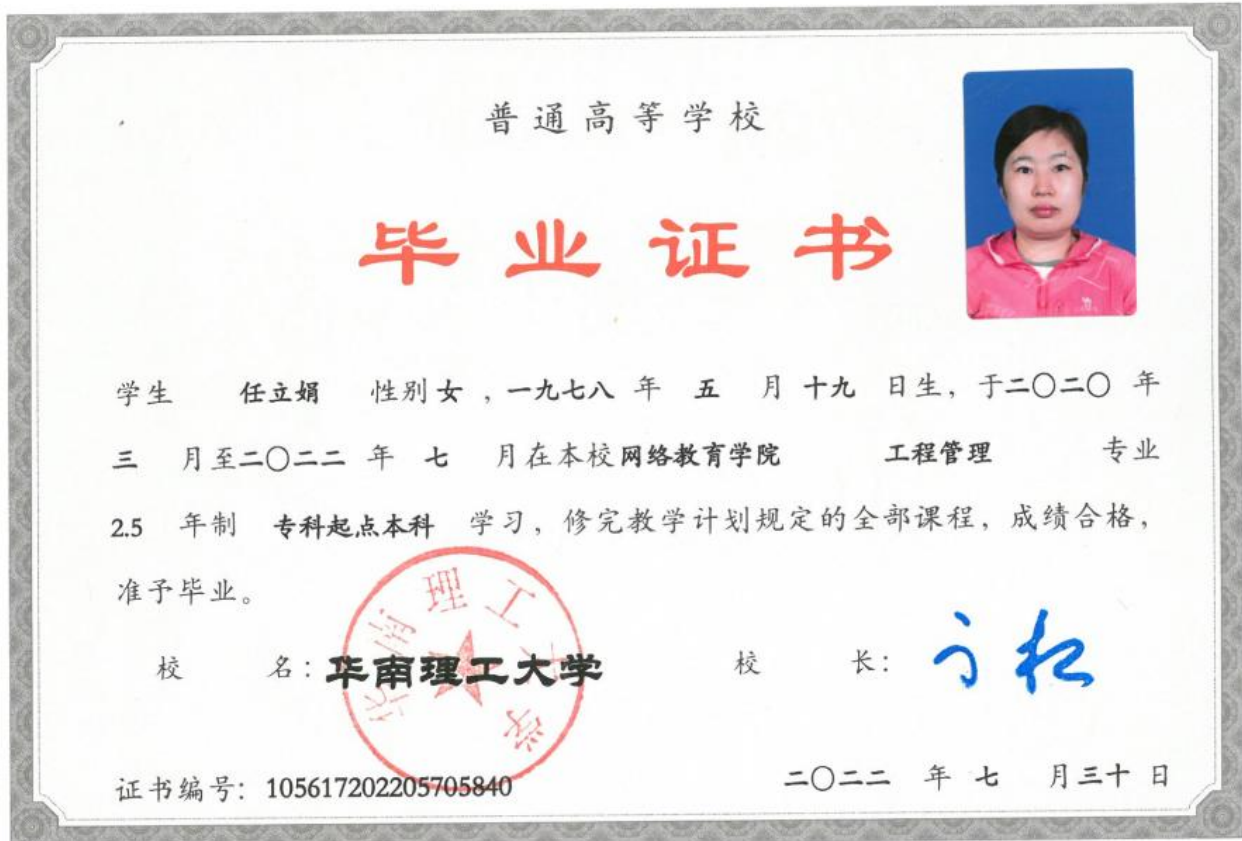 普通高等学校
毕业证书
学生 任立娟 性别 女 ，一九七八 年 五 月 十九 日生，于二〇二〇 年
三 月至二〇二二 年 七 月在本校 网络教育学院 工程管理 专业
2.5 年制 专科起点本科 学习，修完教学计划规定的全部课程，成绩合格，
准予毕业。
华南理工大学
校 名：华南理工大学 校 长：
证书编号：105617202205705840 二〇二二 年 七 月三十 日